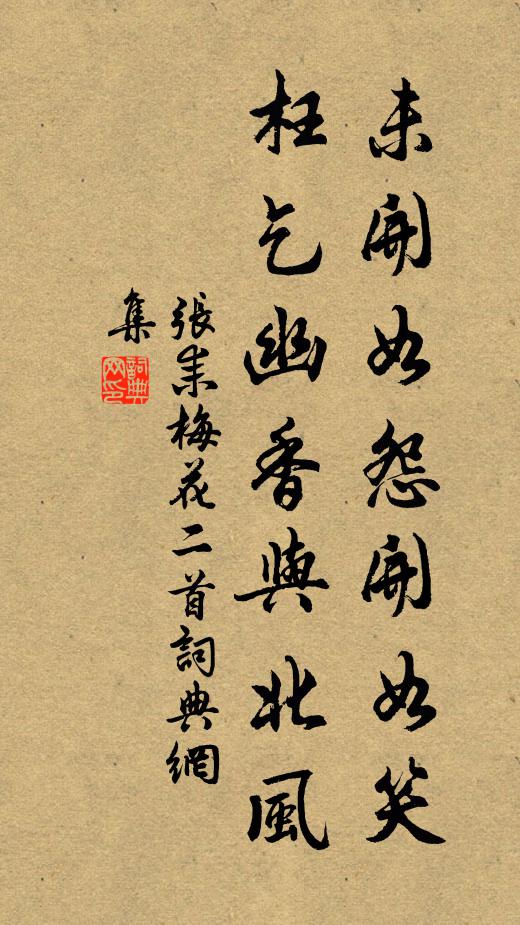 未開如怨開如笑
枉乞幽香與北風
張耒梅花二首詞典網
集
詞典
网印